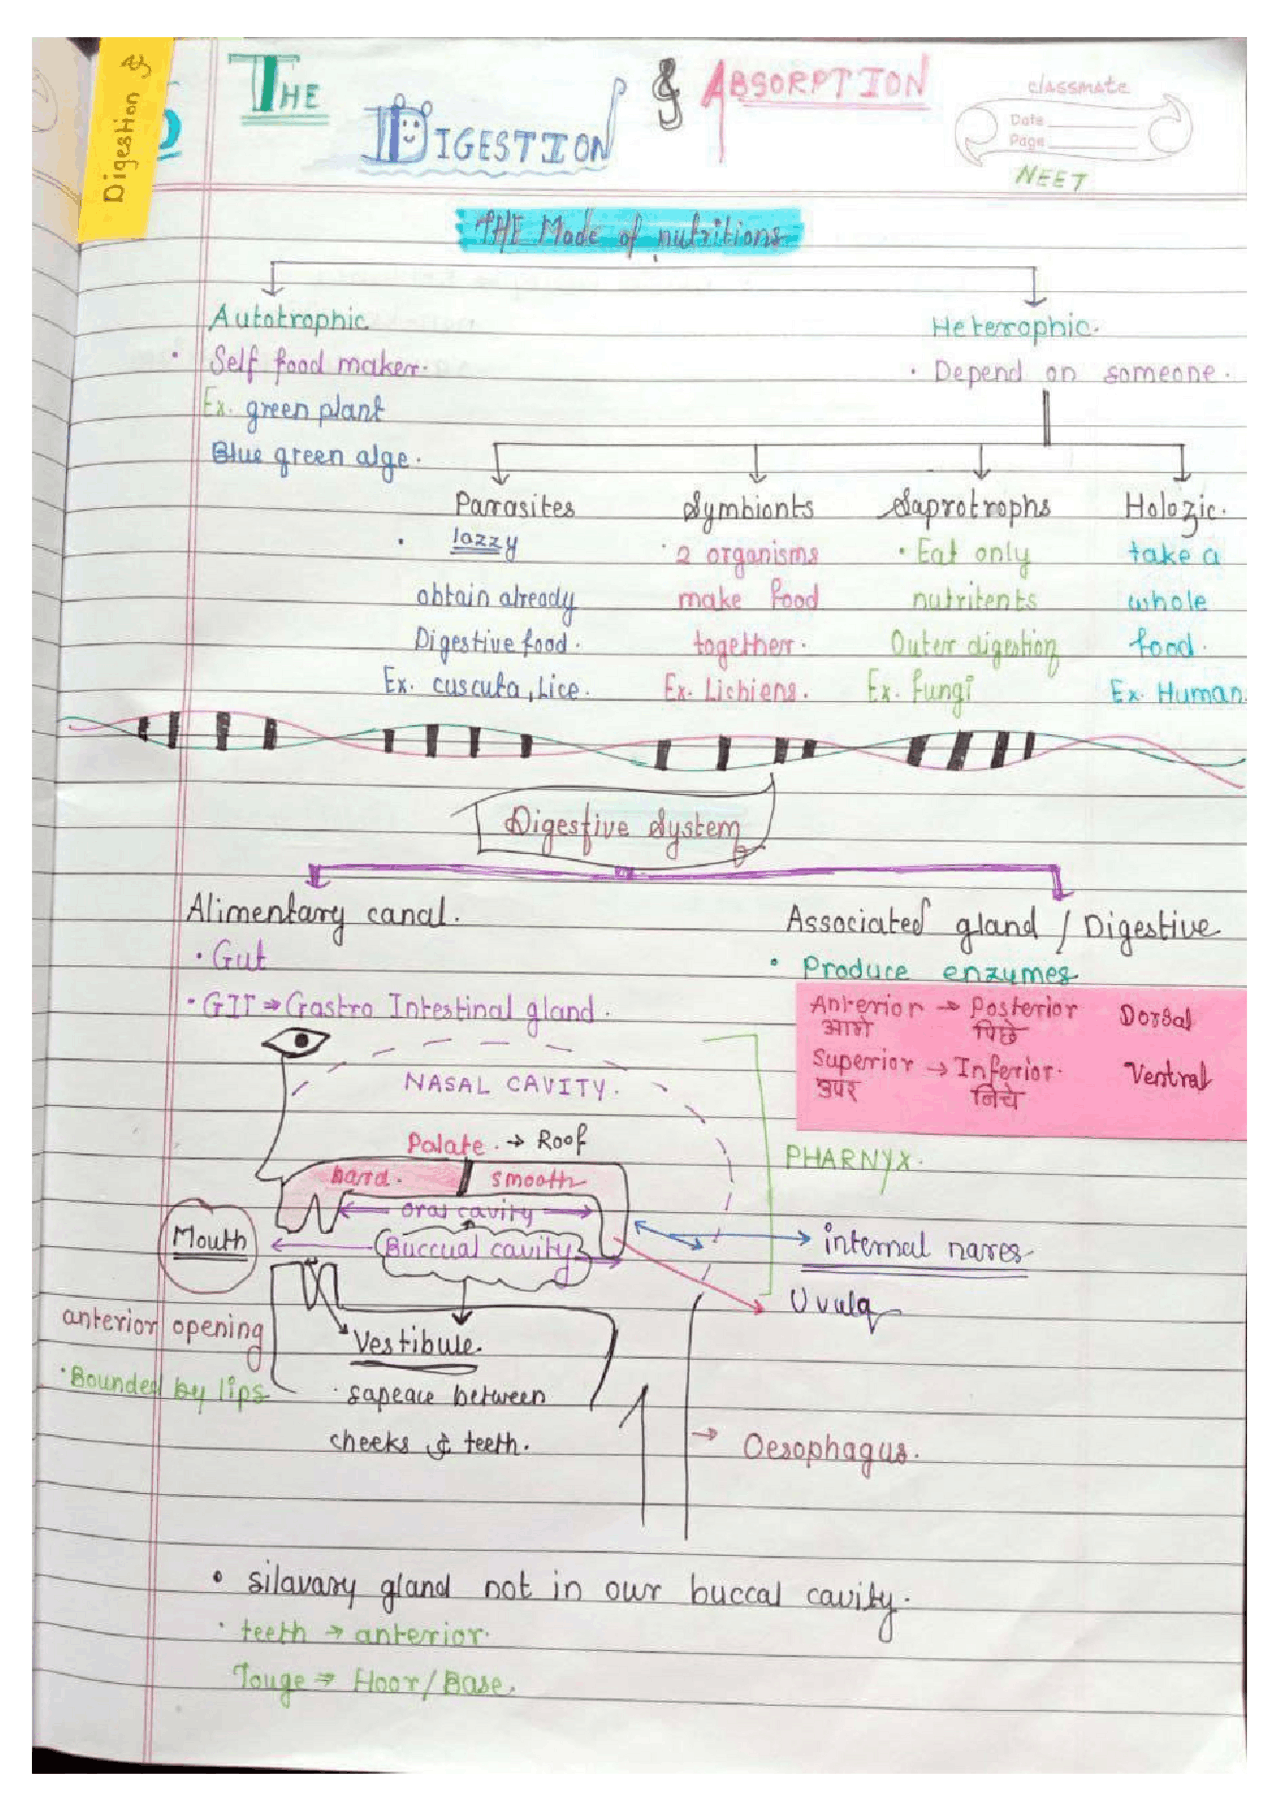 Digestion &
THE DIGESTION & ABSORPTION
classmate
Date
Page
NEET
THE Mode of nutritions
Autotrophic
Heterophic.
• Self food maker.
• Depend on someone.
Ex. green plant
Blue green alge.
Parasites
Symbionts
Saprotrophs
Holozic.
• lazzy
• 2 organisms
• Eat only
take a
obtain already
make food
nutritents
whole
Digestive food.
together.
Outer digestion
food.
Ex. cuscuta, Lice.
Ex. Lichiens.
Ex. fungi
Ex. Human.
Digestive System
Alimentary canal.
Associated gland / Digestive
• Gut
• Produce enzymes
• GIT ⇒ Gastro Intestinal gland.
Anterior → Posterior Dorsal
आगे पिछे
Superior → Inferior. Ventral
उपर निचे
NASAL CAVITY.
Palate. → Roof
PHARNYX.
hard. smooth
oral cavity
Mouth
Buccual cavity
internal nares
Uvula
anterior opening
Vestibule.
• Bounded by lips
• sapeace between
cheeks & teeth.
→ Oesophagus.
• silavary gland not in our buccal cavity.
• teeth → anterior.
Touge ⇒ Floor/Base.